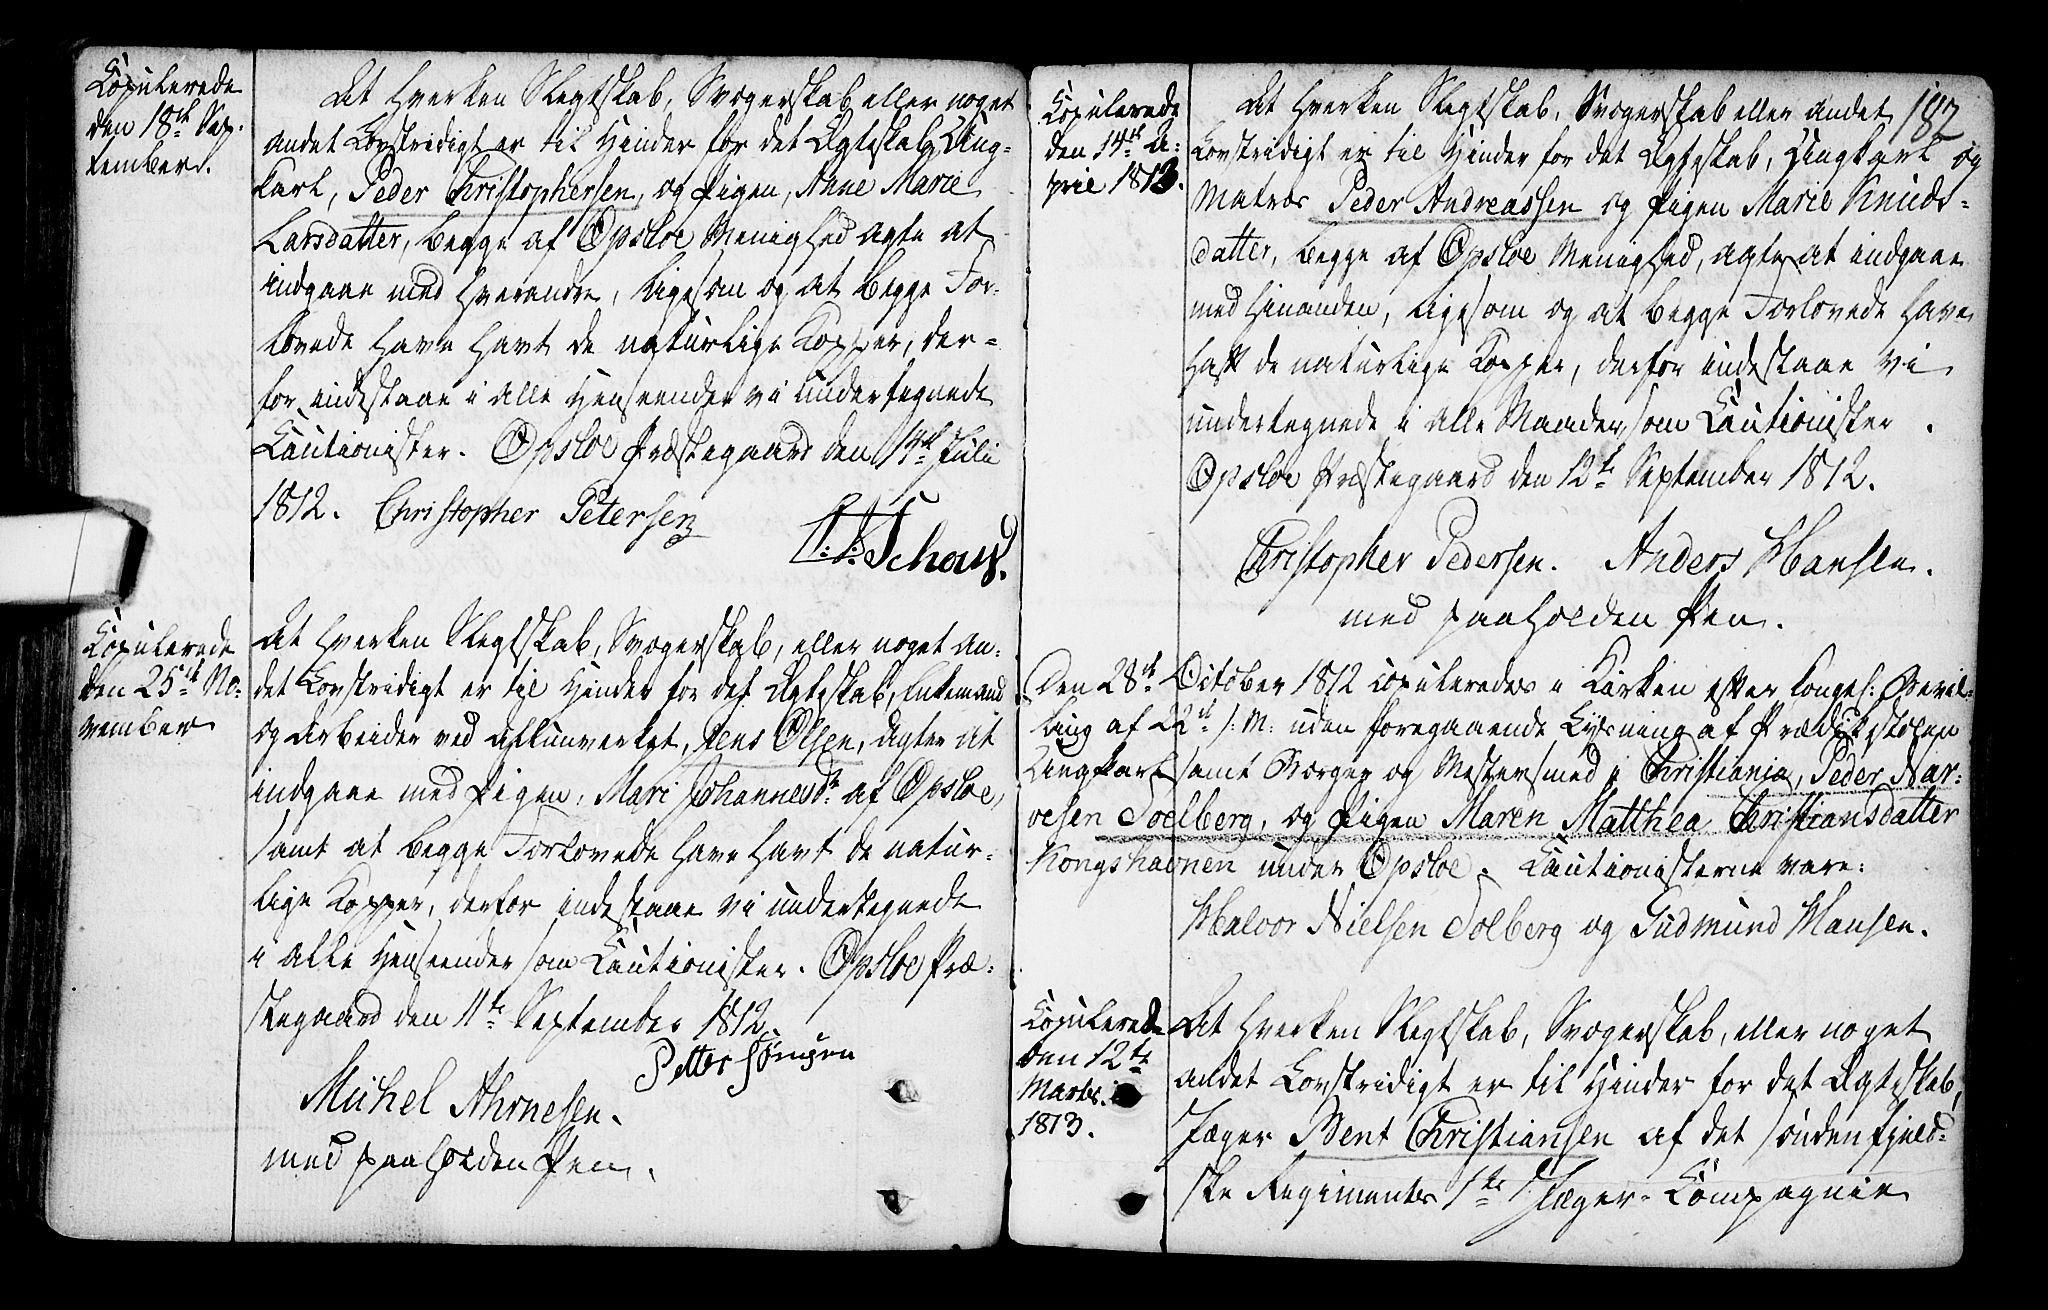 Copulerede
den 18de Sep-
tember.
At hverken Slegtskab, Svogerskab eller noget
andet Lovstridigt er til Hinder for det Ægteskab Ung-
karl, Peder Christophersen, og Pigen, Anne Marie
Larsdatter, begge af Opsloe Menighed agte at
indgaae med hverandre, ligesom og at begge For-
lovede have havt de naturlige Kopper, der-
for indestaae i alle Henseender vi undertegnede
Cautionister. Opsloe Præstegaard den 14de Julii
1812. Christopher Petersen
Schou.
Copulerede
den 25de No-
vember
At hverken Slegtskab, Svogerskab, eller noget an-
det Lovstridigt er til Hinder for det Ægteskab, Enkemand
og Arbeider ved Allunverket, Jens Olsen, agter at
indgaae med Pigen, Mari Johannesdr af Opsloe,
samt at begge Forlovede have havt de natur-
lige Kopper, derfor indestaae vi undertegnede
i alle Henseender som Cautionister. Opsloe Præ-
stegaard den 11te September 1812.
Petter Jörnsen
Michel Ahrnesen.
med paaholden Pen.
182
Copulerede
den 14de A-
pril 1813.
At hverken Slegtskab, Svogerskab eller andet
Lovstridigt er til Hinder for det Ægteskab, Ungkarl og
Matros Peder Andreassen og Pigen Marie Knuds-
datter, begge af Opsloe Menighed, agter at indgaae
med hinanden, ligesom og at begge Forlovede have
haft de naturlige Kopper, derfor indestaae vi
undertegnede i alle Maader, som Cautionister.
Opsloe Præstegaard den 12te September 1812.
Christopher Pedersen. Anders Hansen.
med paaholden Pen.
Den 28de October 1812 copuleredes i Kirken efter kongel: Bevil-
ling af 22de s: M: uden foregaaende Lysning af Prædikestolen
Ungkarl samt Borger og Mestersmed i Christiania, Peder Nar-
vesen Soelberg, og Pigen Maren Matthea Christiansdatter
Kongshavnen under Opsloe. Cautionisterne vare:
Halvor Nielsen Solberg og Gudmund Hansen.
Copulerede
den 12te
Martii
1813.
At hverken Slegtskab, Svogerskab, eller noget
andet Lovstridigt er til Hinder for det Ægteskab,
Jæger Bent Christiansen af det søndenfjeld-
ske Regiments 1te Jæger-Compagnie